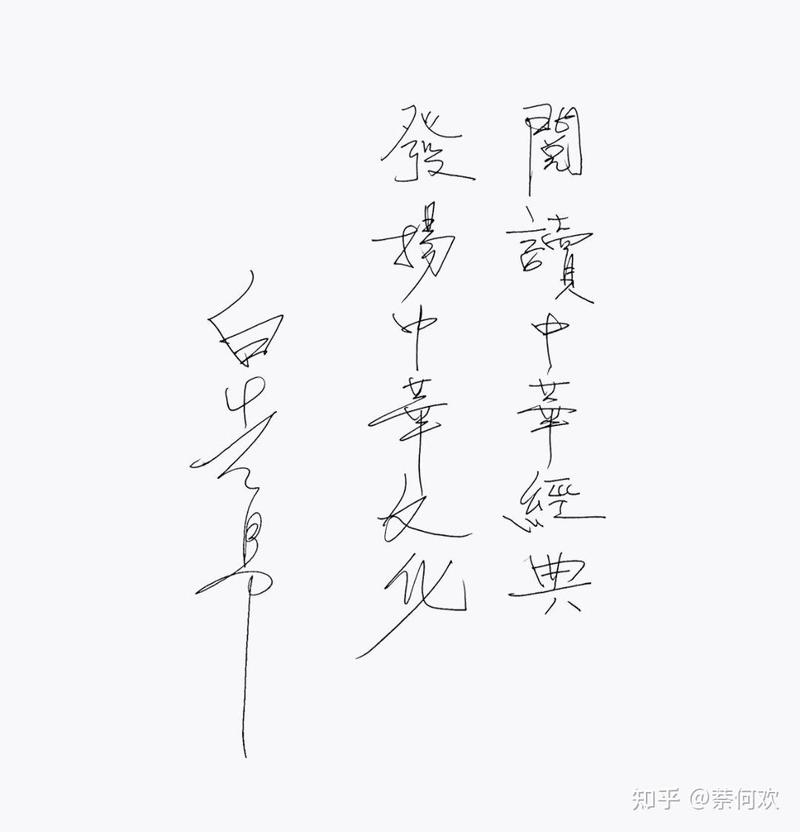 閱讀中華經典
發揚中華文化
白先勇
知乎 @萘何欢